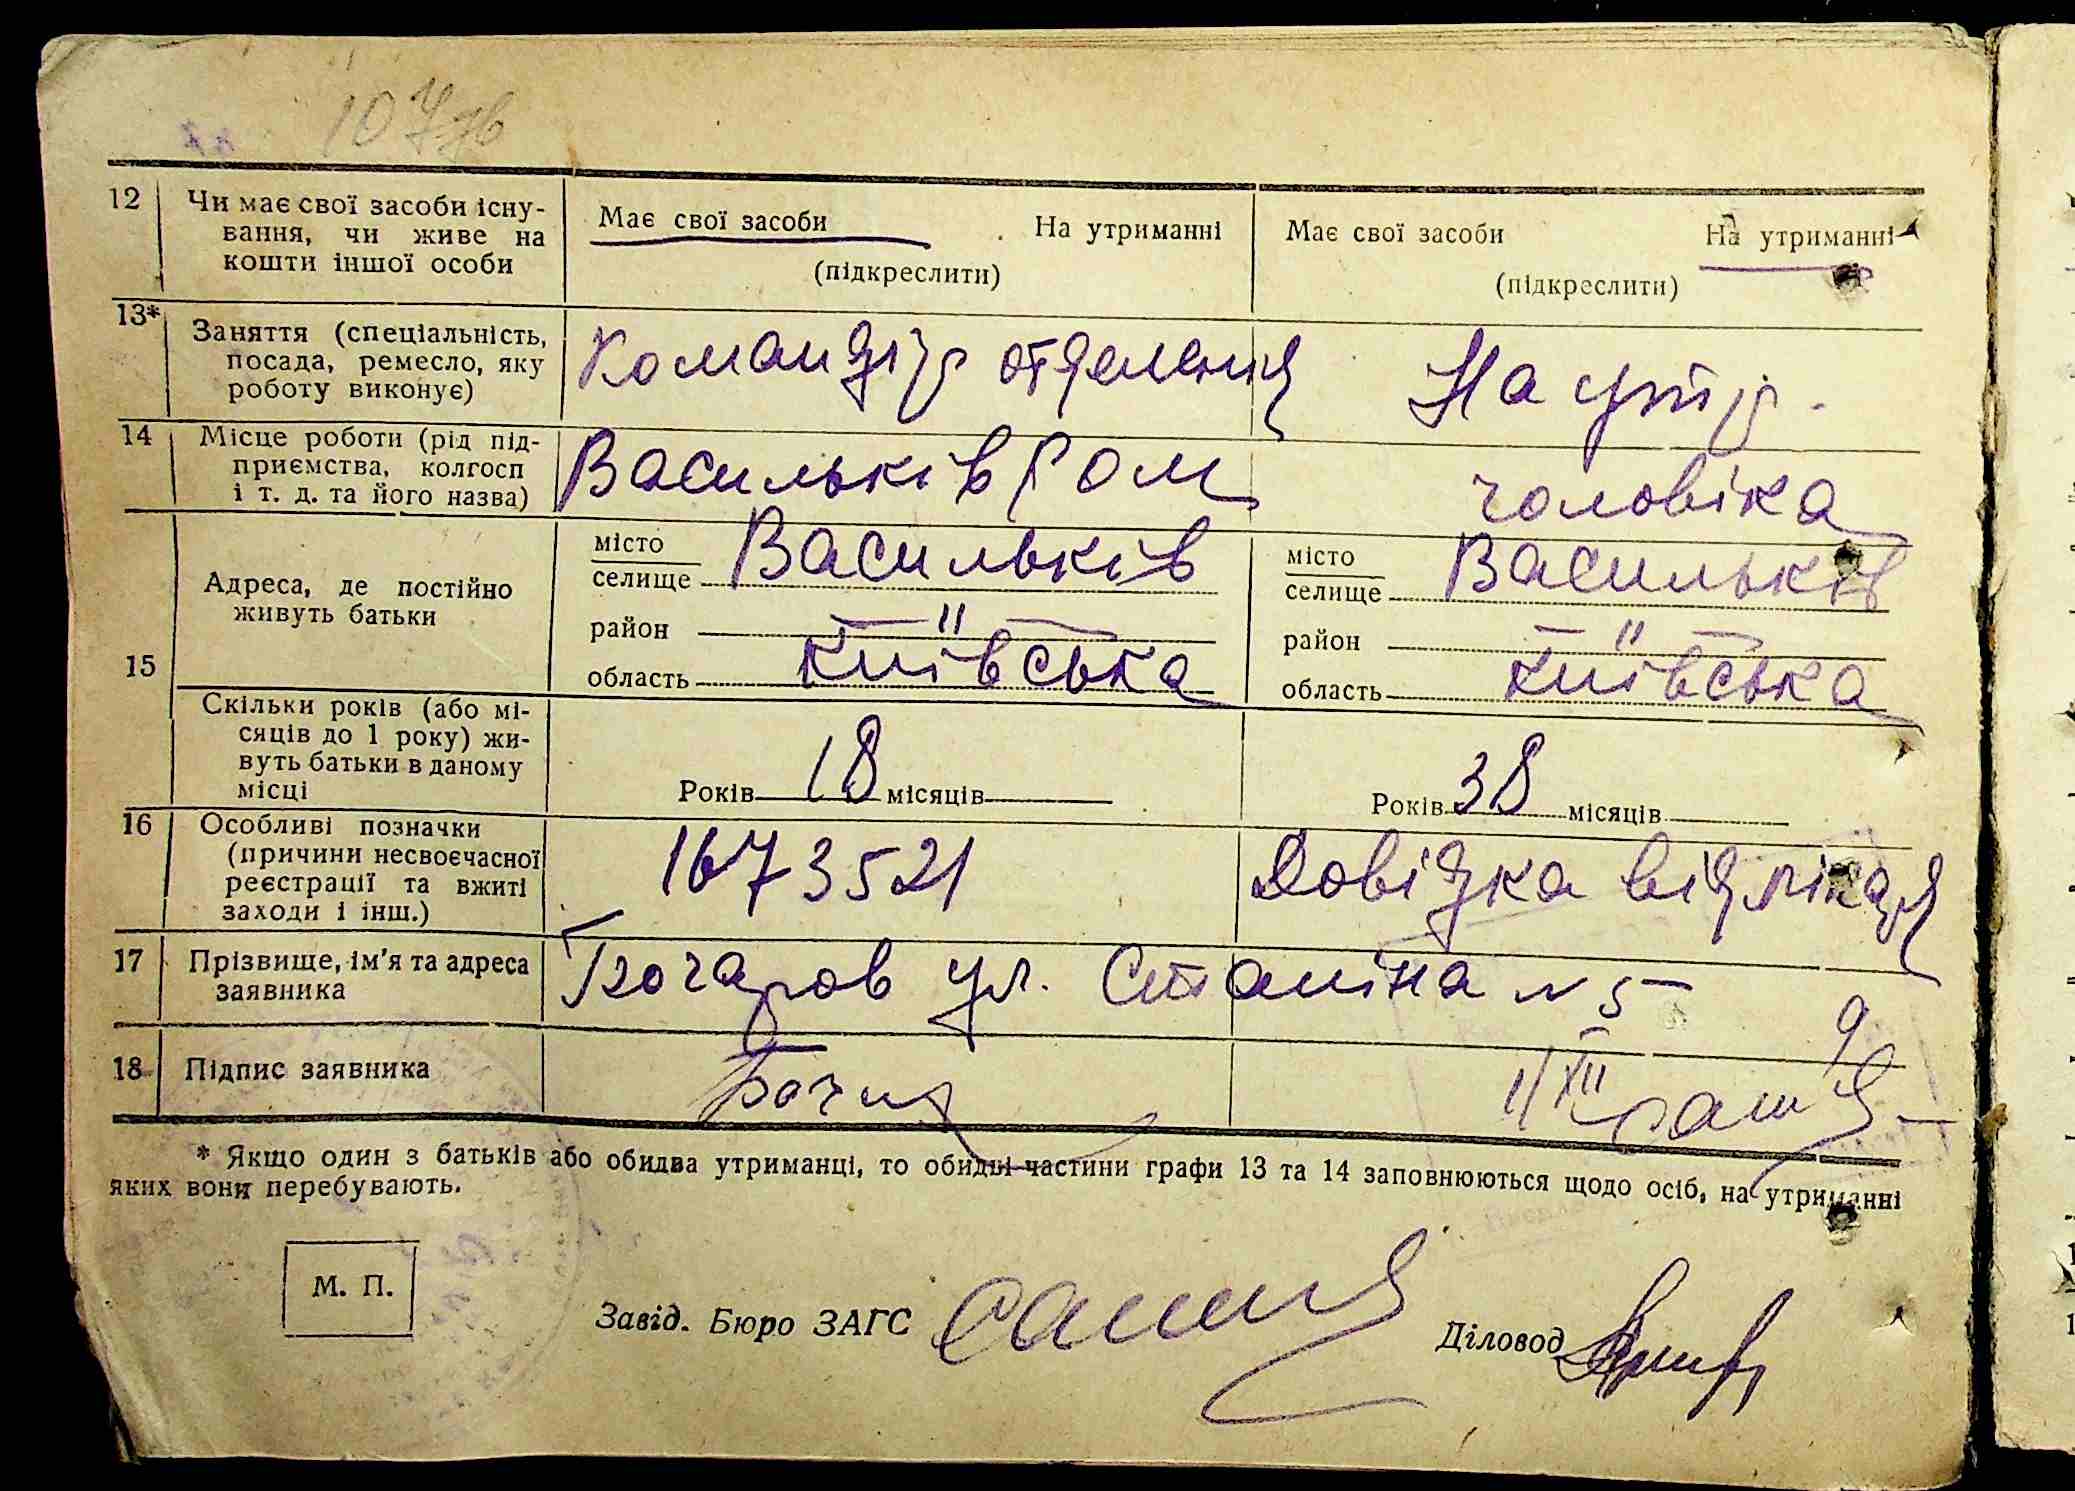 107
12 Чи має свої засоби існу-
вання, чи живе на
кошти іншої особи
Має свої засоби На утриманні
(підкреслити)
Має свої засоби На утриманні
(підкреслити)
13* Заняття (спеціальність,
посада, ремесло, яку
роботу виконує)
Командір отделенія
На утр.
14 Місце роботи (рід під-
приємства, колгосп
і т. д. та його назва)
Васильків
чоловіка
15 Адреса, де постійно
живуть батьки
місто
селище Васильків
район —"—
область Київська
місто
селище Васильків
район —"—
область Київська
Скільки років (або мі-
сяців до 1 року) жи-
вуть батьки в даному
місці
Років 18 місяців
Років 38 місяців
16 Особливі позначки
(причини несвоєчасної
реєстрації та вжиті
заходи і інш.)
1673521
Довідка від лікаря
17 Прізвище, ім'я та адреса
заявника
Бочаров ул. Сталіна N 5
18 Підпис заявника
* Якщо один з батьків або обидва утриманці, то обидві частини графи 13 та 14 заповнюються щодо осіб, на утриманні
яких вони перебувають.
М. П.
Завід. Бюро ЗАГС
Діловод